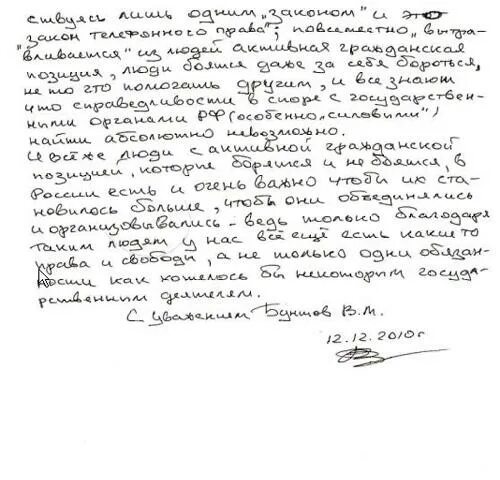 ствуясь лишь одним „законом" и это
закон телефонного права"; повсеместно „вытра-
вливается" из людей активная гражданская
позиция, люди боятся даже за себя бороться,
не то что помогать другим, и все знают
что справедливости в споре с государствен-
ными органами РФ (особенно „силовыми")
найти абсолютно невозможно.
И всё же люди с активной гражданской
позицией, которые борятся и не боятся, в
России есть и очень важно чтобы их ста-
новилось больше, чтобы они объединялись
и организовывались - ведь только благодаря
таким людям у нас всё ещё есть какие то
права и свободы, а не только одни обязан-
ности как хотелось бы некоторым госуда-
рственным деятелям.
С уважением Бунтов В.М.
12.12.2010г